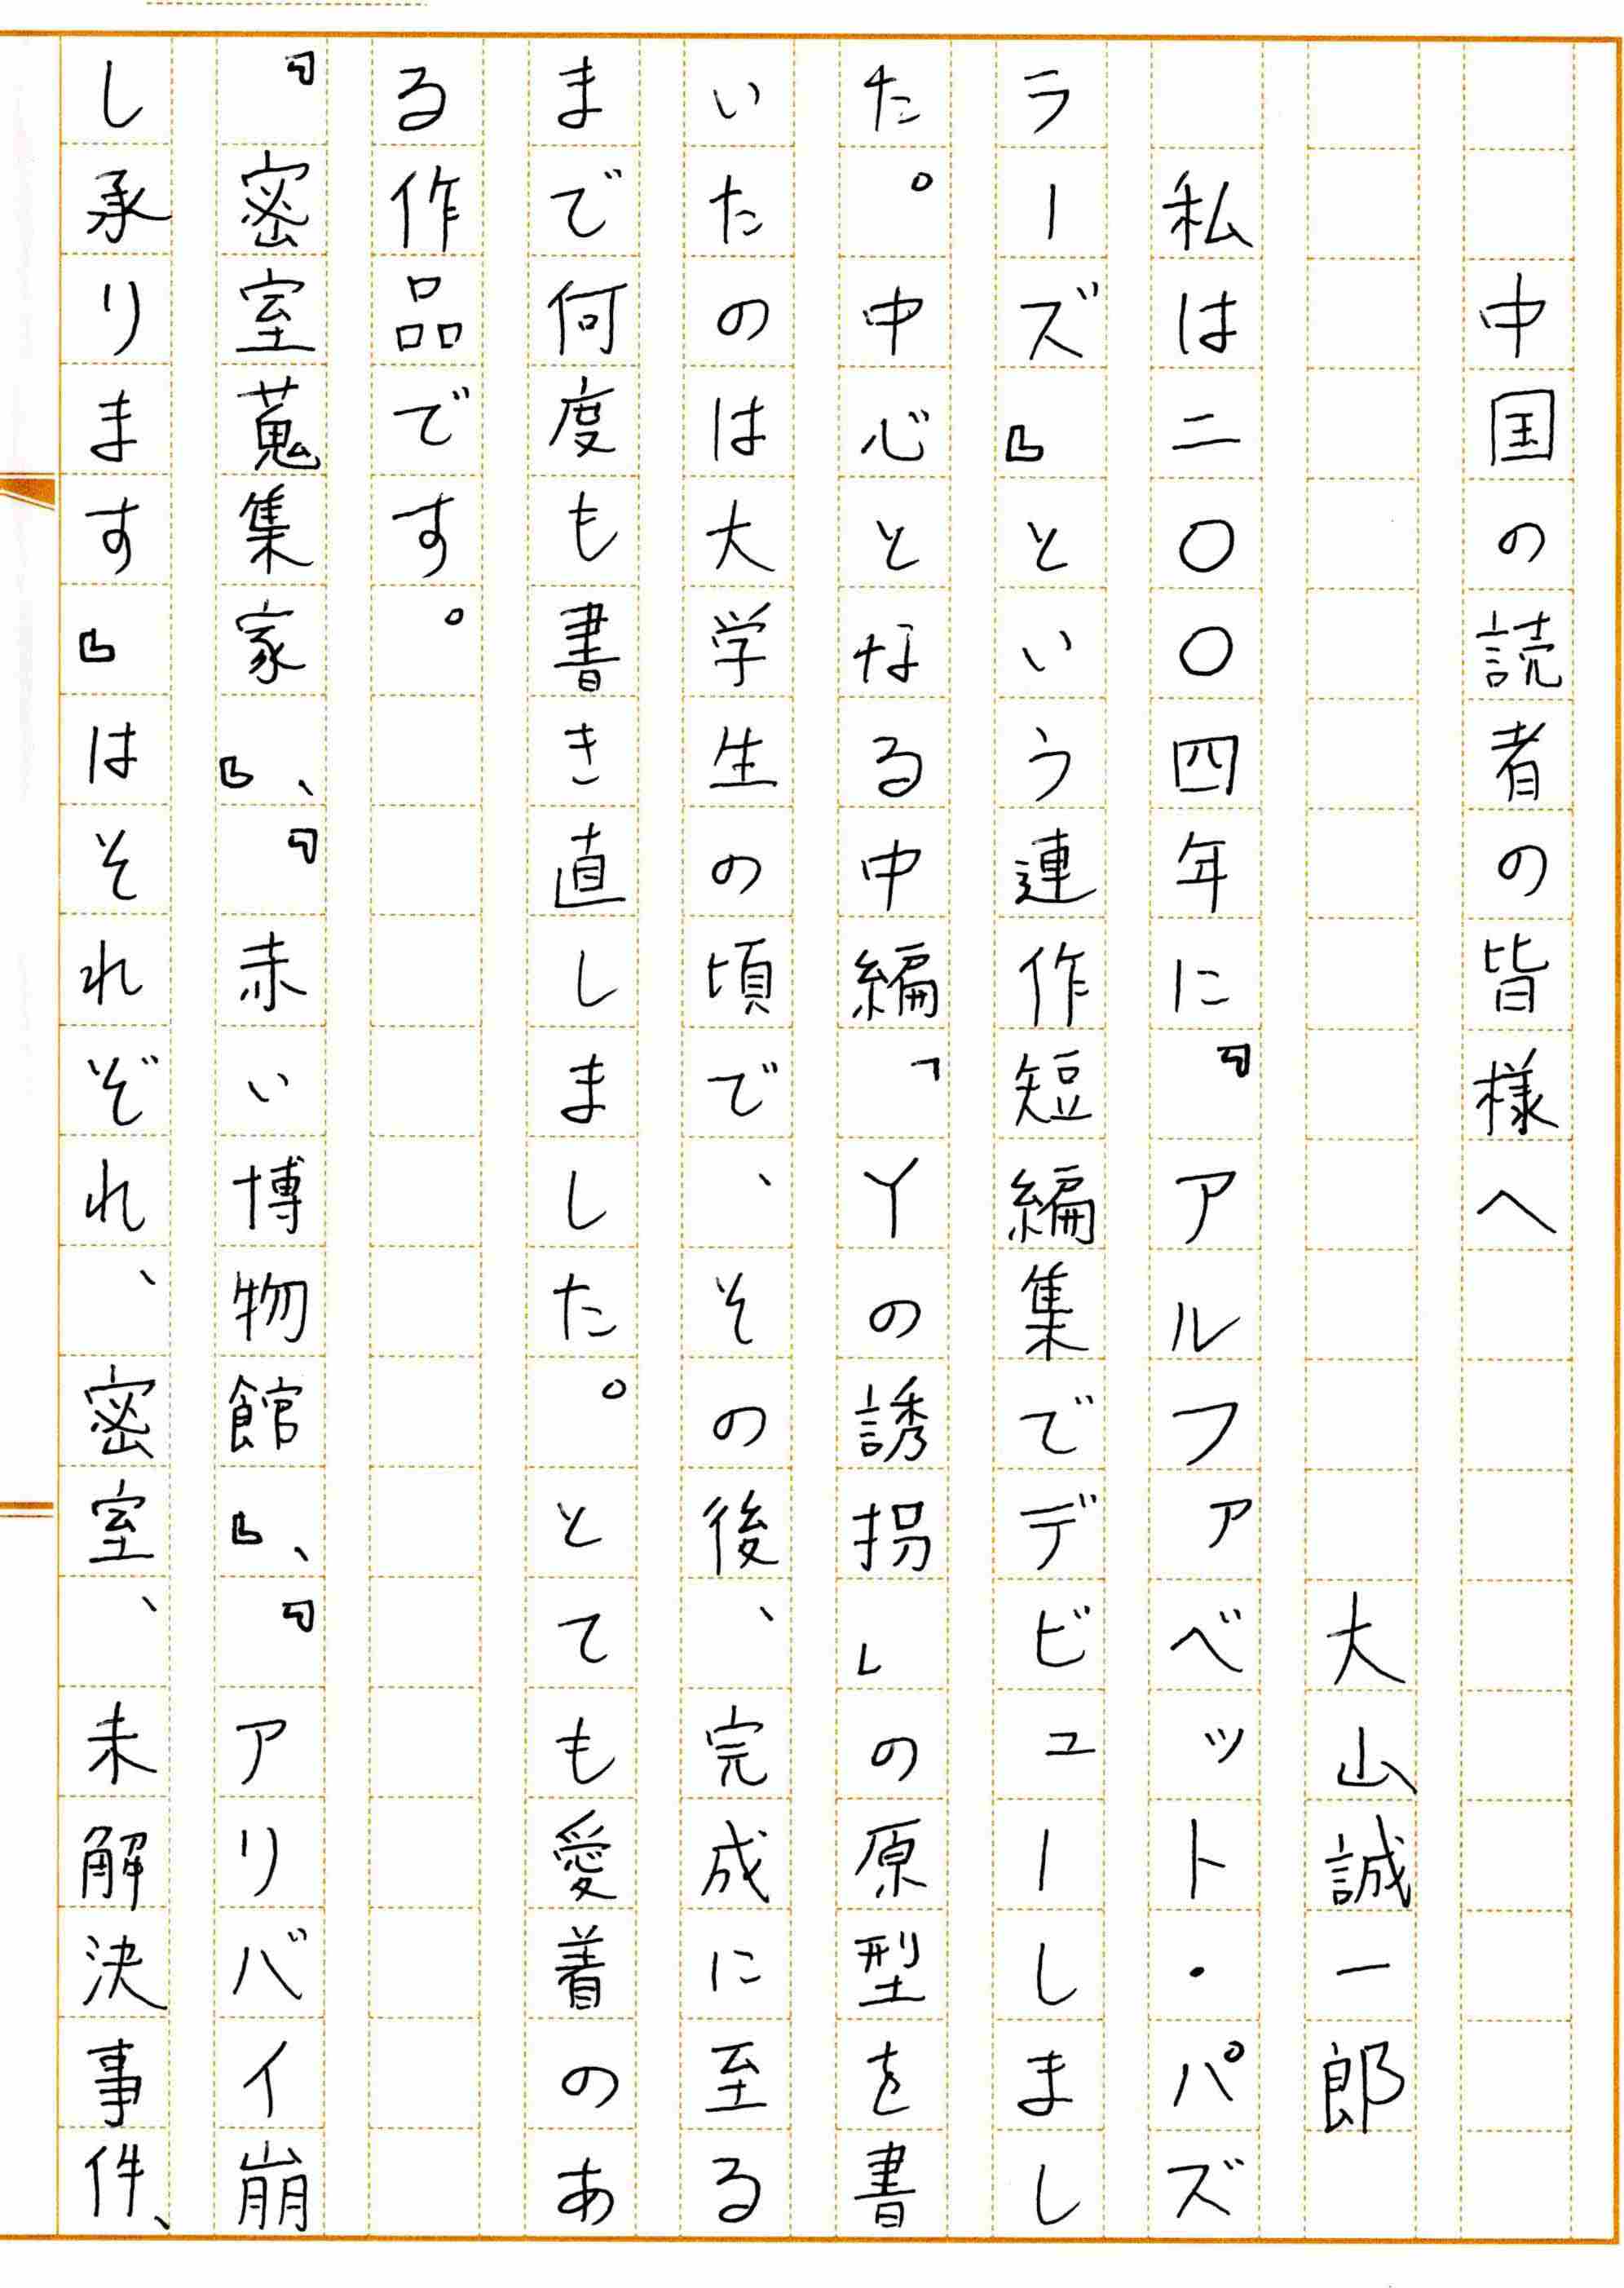 中国の読者の皆様へ
大山誠一郎
私は二〇〇四年に『アルファベット・パズ
ラーズ』という連作短編集でデビューしまし
た。中心となる中編「Yの誘拐」の原型を書
いたのは大学生の頃で、その後、完成に至る
まで何度も書き直しました。とても愛着のあ
る作品です。
『密室蒐集家』、『赤い博物館』、『アリバイ崩
し承ります』はそれぞれ、密室、未解決事件、